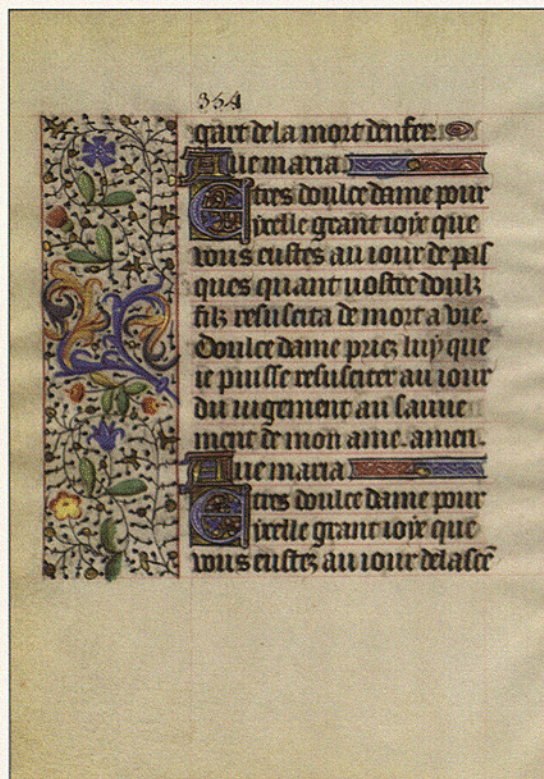 354
gart dela mort denfer
Aue maria
E tres doulce dame pour
ycelle grant ioye que
vous eustes au iour de pas
ques quant uostre doulz
filz resuscita de mort a vie.
Doulce dame priez luy que
ie puisse resusciter au iour
du iugement au sauue
ment de mon ame. amen.
Aue maria
E tres doulce dame pour
ycelle grant ioye que
vous eustez au iour delascē